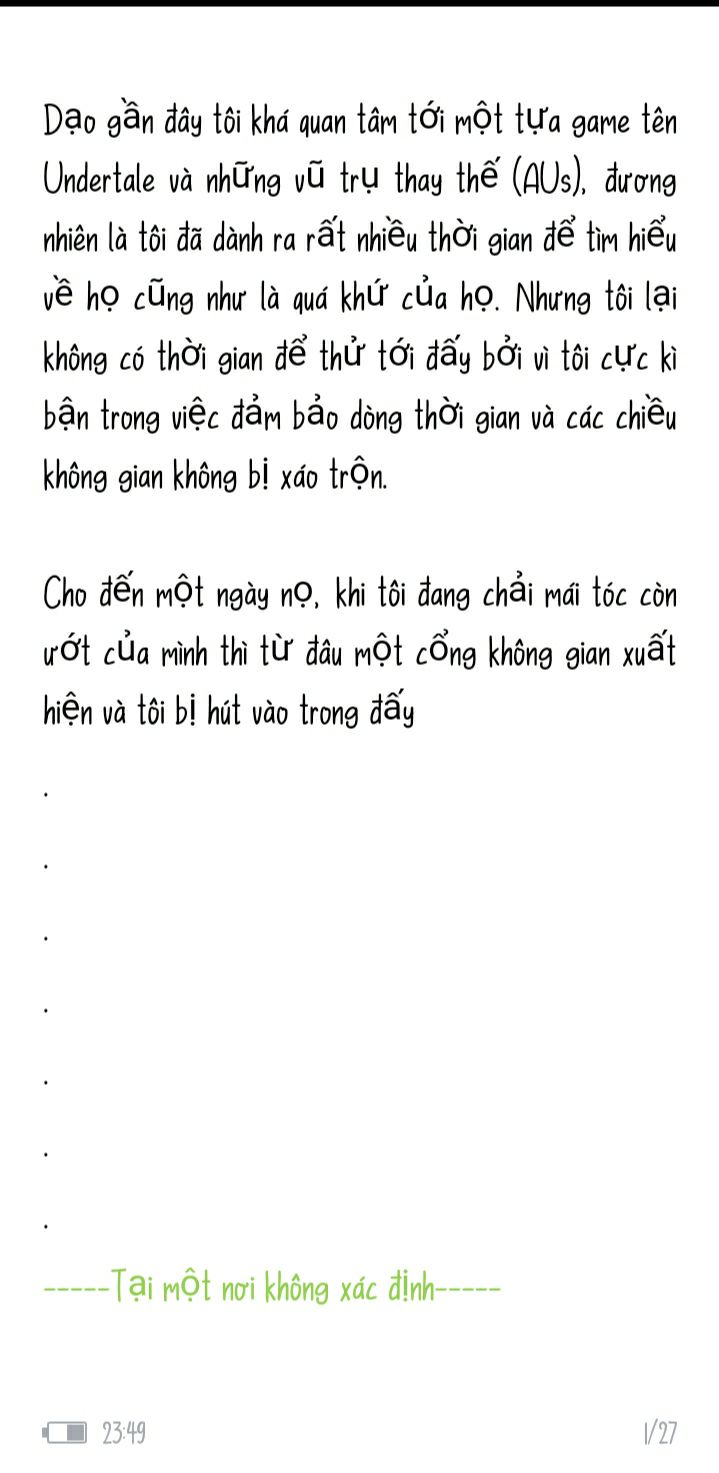 Dạo gần đây tôi khá quan tâm tới một tựa game tên
Undertale và những vũ trụ thay thế (AUs), đương
nhiên là tôi đã dành ra rất nhiều thời gian để tìm hiểu
về họ cũng như là quá khứ của họ. Nhưng tôi lại
không có thời gian để thử tới đấy bởi vì tôi cực kì
bận trong việc đảm bảo dòng thời gian và các chiều
không gian không bị xáo trộn.
Cho đến một ngày nọ, khi tôi đang chải mái tóc còn
ướt của mình thì từ đâu một cổng không gian xuất
hiện và tôi bị hút vào trong đấy
.
.
.
.
.
.
.
-----Tại một nơi không xác định-----
23:49
1/27